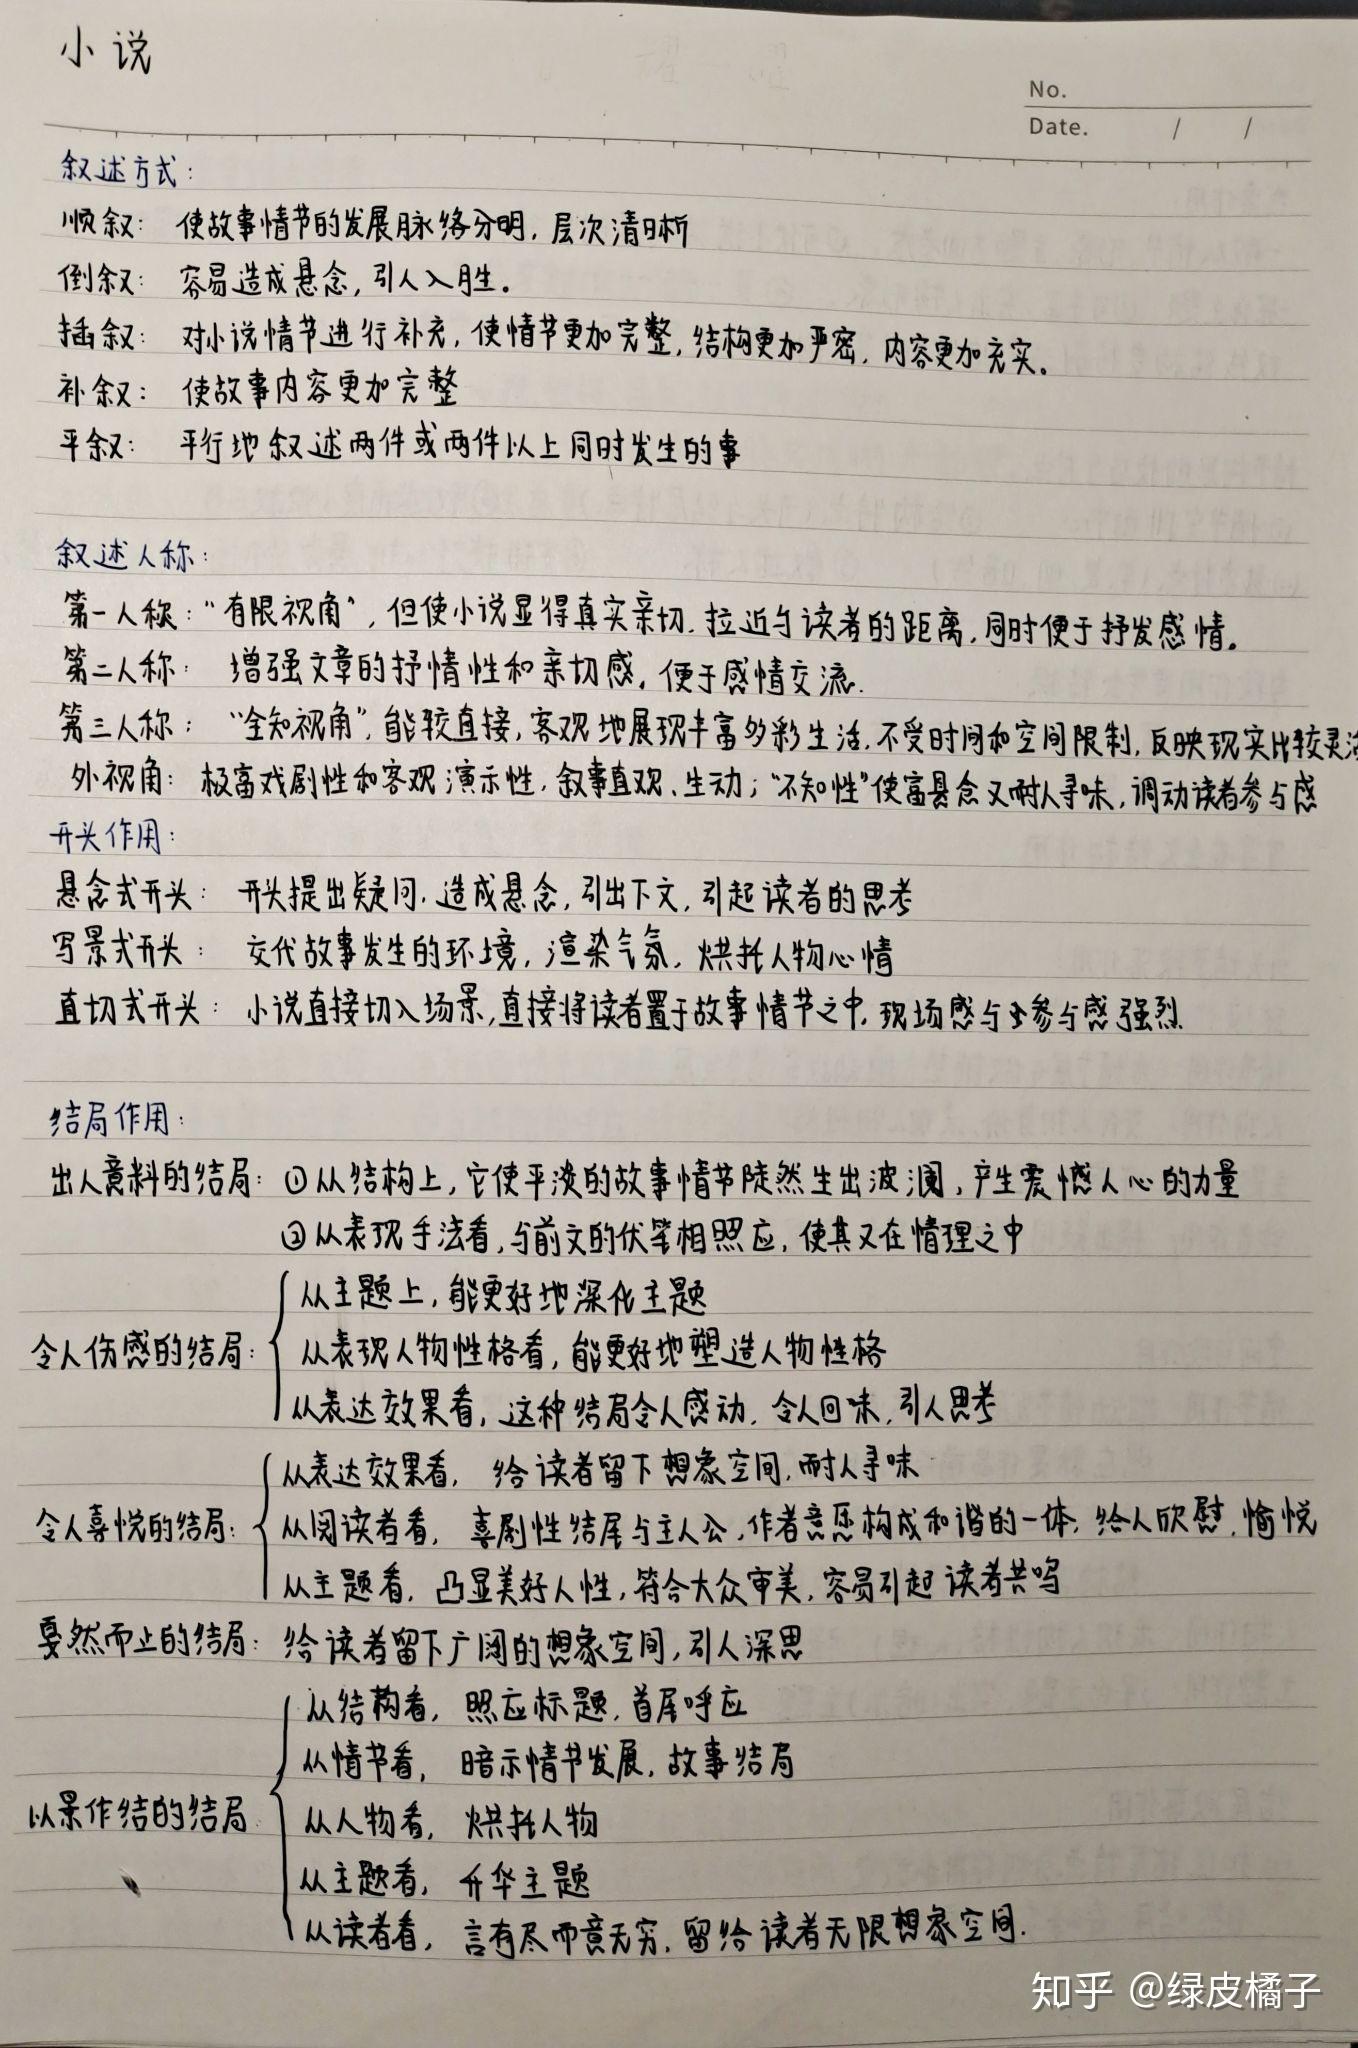 小说
No.
Date. / /
叙述方式：
顺叙： 使故事情节的发展脉络分明，层次清晰
倒叙： 容易造成悬念，引人入胜。
插叙： 对小说情节进行补充，使情节更加完整，结构更加严密，内容更加充实。
补叙： 使故事内容更加完整
平叙： 平行地叙述两件或两件以上同时发生的事
叙述人称：
第一人称：“有限视角”，但使小说显得真实亲切，拉近与读者的距离，同时便于抒发感情。
第二人称： 增强文章的抒情性和亲切感，便于感情交流.
第三人称： “全知视角”，能较直接，客观地展现丰富多彩生活，不受时间和空间限制，反映现实比较灵活
外视角： 极富戏剧性和客观演示性，叙事直观、生动；“不知性”使富悬念又耐人寻味，调动读者参与感
开头作用：
悬念式开头： 开头提出疑问，造成悬念，引出下文，引起读者的思考
写景式开头： 交代故事发生的环境，渲染气氛，烘托人物心情
直切式开头： 小说直接切入场景，直接将读者置于故事情节之中，现场感与参与感强烈.
结局作用：
出人意料的结局： ①从结构上，它使平淡的故事情节陡然生出波澜，产生震憾人心的力量
②从表现手法看，与前文的伏笔相照应，使其又在情理之中
从主题上，能更好地深化主题
令人伤感的结局： 从表现人物性格看，能更好地塑造人物性格
从表达效果看，这种结局令人感动，令人回味，引人思考
从表达效果看， 给读者留下想象空间，耐人寻味
令人喜悦的结局： 从阅读者看， 喜剧性结尾与主人公，作者意愿构成和谐的一体，给人欣慰，愉悦
从主题看，凸显美好人性，符合大众审美，容易引起读者共鸣
戛然而止的结局： 给读者留下广阔的想象空间，引人深思
从结构看， 照应标题，首尾呼应
从情节看， 暗示情节发展，故事结局
以景作结的结局 从人物看， 烘托人物
从主题看， 升华主题
从读者看， 言有尽而意无穷，留给读者无限想象空间.
知乎 @绿皮橘子